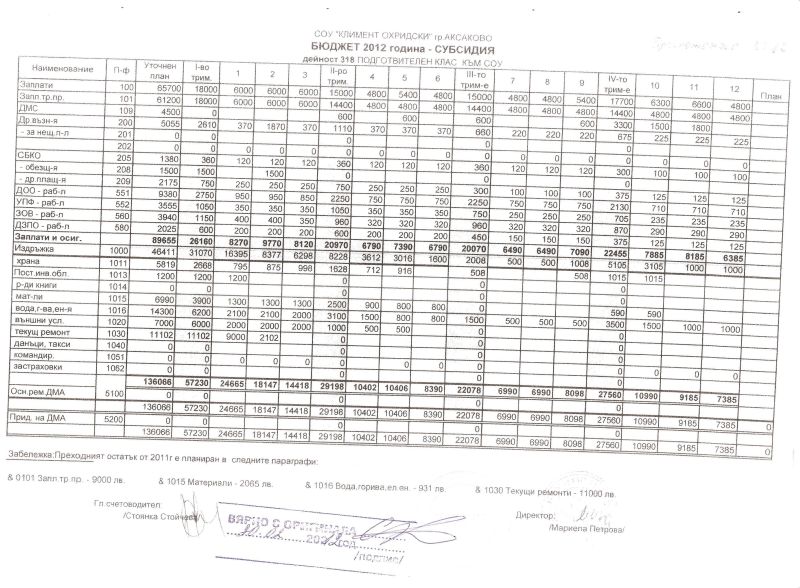 СОУ "КЛИМЕНТ ОХРИДСКИ" гр.АКСАКОВО
БЮДЖЕТ 2012 година - СУБСИДИЯ
дейност 318 ПОДГОТВИТЕЛЕН КЛАС КЪМ СОУ
Наименование П-ф Уточнен план I-во трим. 1 2 3 II-ро трим. 4 5 6 III-то трим-е 7 8 9 IV-то трим-е 10 11 12 План
Заплати 100 65700 18000 6000 6000 6000 15000 4800 5400 4800 15000 4800 4800 5400 17700 6300 6600 4800
Запл.тр.пр. 101 61200 18000 6000 6000 6000 14400 4800 4800 4800 14400 4800 4800 4800 14400 4800 4800 4800
ДМС 109 4500 0 600 600 600 600 3300 1500 1800
Др.възн-я 200 5055 2610 370 1870 370 1110 370 370 370 660 220 220 220 675 225 225 225
- за нещ.п-л 201 0 0 0 0
202 0 0 0 0 0 0 0 0 0 0 0 0 0 0 0 0
СБКО 205 1380 360 120 120 120 360 120 120 120 360 120 120 120 300 100 100 100
- обезщ-я 208 1500 1500 1500 0 0 0
- др.плащ-я 209 2175 750 250 250 250 750 250 250 250 300 100 100 100 375 125 125 125
ДОО - раб-л 551 9380 2750 950 950 850 2250 750 750 750 2250 750 750 750 2130 710 710 710
УПФ - раб-л 552 3555 1050 350 350 350 1050 350 350 350 750 250 250 250 705 235 235 235
ЗОВ - раб-л 560 3940 1150 400 400 350 960 320 320 320 960 320 320 320 870 290 290 290
ДЗПО - раб-л 580 2025 600 200 200 200 600 200 200 200 450 150 150 150 375 125 125 125
Заплати и осиг. 89655 26160 8270 9770 8120 20970 6790 7390 6790 20070 6490 6490 7090 22455 7885 8185 6385
Издръжка 1000 46411 31070 16395 8377 6298 8228 3612 3016 1600 2008 500 500 1008 5105 3105 1000 1000
храна 1011 5819 2668 795 875 998 1628 712 916 508 508 1015 1015
Пост.инв.обл. 1013 1200 1200 1200 0 0 0
р-ди книги 1014 0 0 0 0
мат-ли 1015 6990 3900 1300 1300 1300 2500 900 800 800 0 590 590
вода,г-ва,ен-я 1016 14300 6200 2100 2100 2000 3100 1500 800 800 1500 500 500 500 3500 1500 1000 1000
външни усл. 1020 7000 6000 2000 2000 2000 1000 500 500 0 0
текущ ремонт 1030 11102 11102 9000 2102 0 0 0
данъци, такси 1040 0 0 0 0
командир. 1051 0 0 0 0
застраховки 1062 0 0 0 0 0 0 0
136066 57230 24665 18147 14418 29198 10402 10406 8390 22078 6990 6990 8098 27560 10990 9185 7385
Осн.рем.ДМА 5100 0 0 0 0
136066 57230 24665 18147 14418 29198 10402 10406 8390 22078 6990 6990 8098 27560 10990 9185 7385 0
Прид. на ДМА 5200 0 0 0 0 0
136066 57230 24665 18147 14418 29198 10402 10406 8390 22078 6990 6990 8098 27560 10990 9185 7385 0
Забележка:Преходният остатък от 2011г е планиран в следните параграфи:
& 0101 Запл.тр.пр. - 9000 лв. & 1015 Материали - 2065 лв. & 1016 Вода,горива,ел.ен. - 931 лв. & 1030 Текущи ремонти - 11000 лв.
Гл.счетоводител: Директор:
/Стоянка Стойчева/ /Мариела Петрова/
ВЯРНО С ОРИГИНАЛА
2012 год.
/подпис/